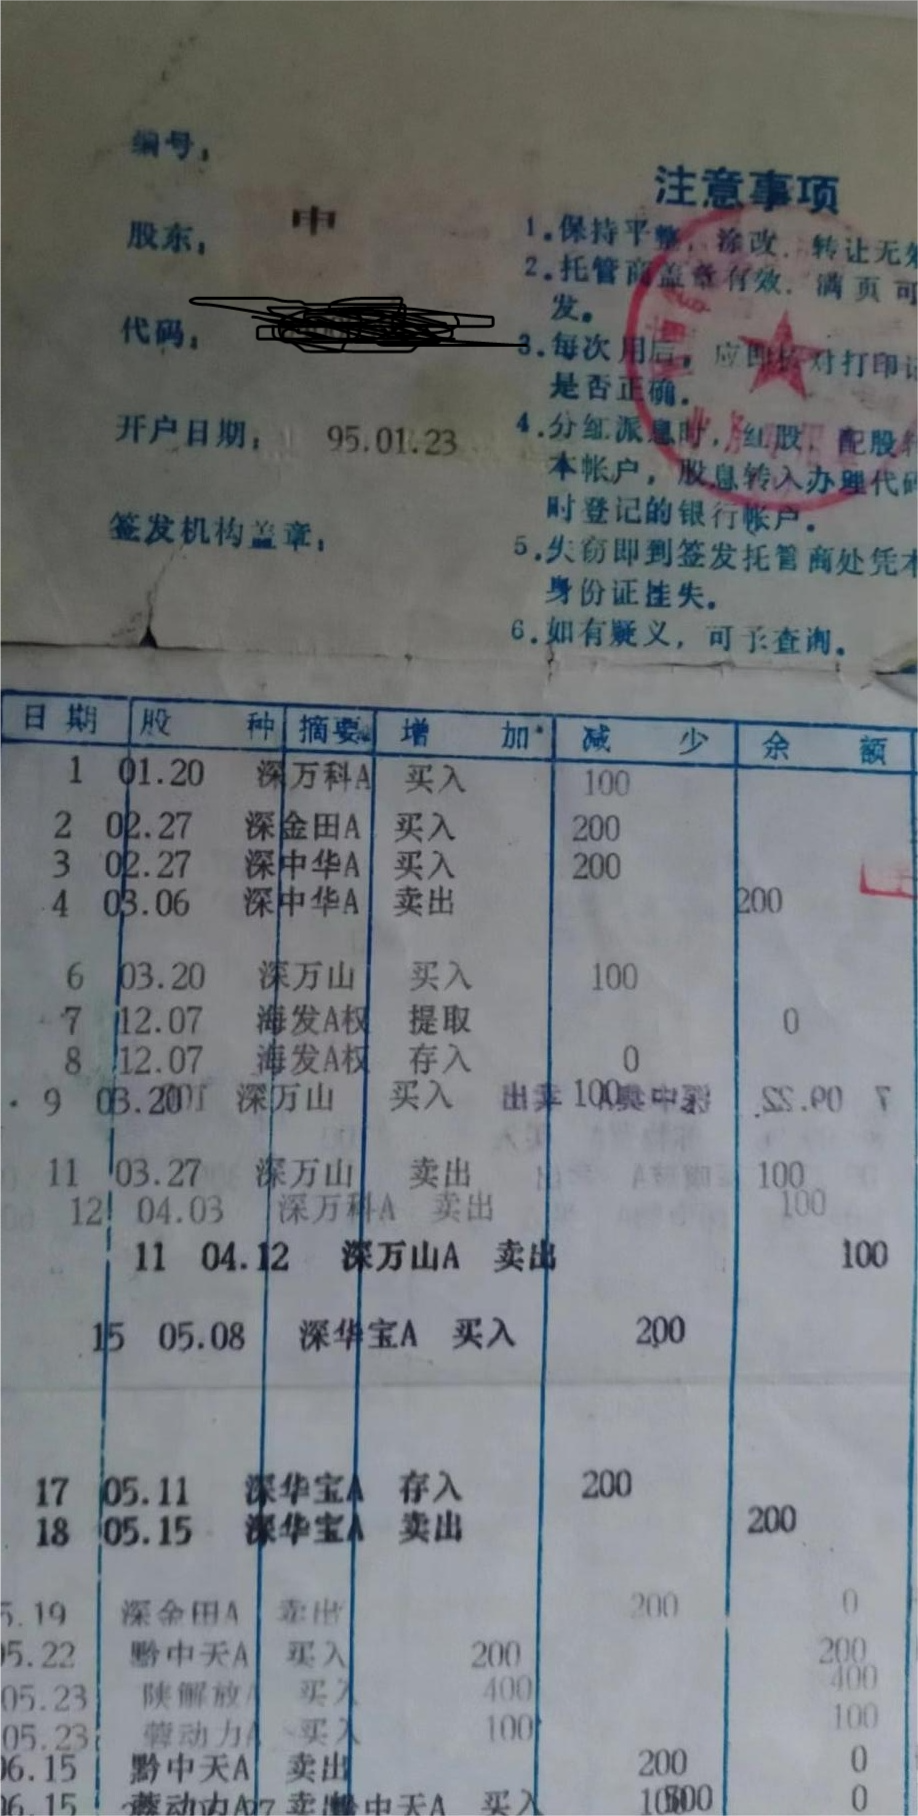 编号：
股东： 申
代码：
开户日期： 95.01.23
签发机构盖章：
注意事项
1.保持平整，涂改．转让无效
2.托管商盖章有效．满页可
发。
3.每次用后，应即核对打印记
是否正确．
4.分红派息时，红股．配股转
本帐户，股息转入办理代码
时登记的银行帐户．
5.失窃即到签发托管商处凭本
身份证挂失．
6.如有疑义，可予查询．
日期 股种 摘要 增加 减少 余额
1 01.20 深万科A 买入 100
2 02.27 深金田A 买入 200
3 02.27 深中华A 买入 200
4 03.06 深中华A 卖出 200
6 03.20 深万山 买入 100
7 12.07 海发A权 提取 0
8 12.07 海发A权 存入 0
9 03.20 深万山 买入 100
11 03.27 深万山 卖出 100
12 04.03 深万科A 卖出 100
11 04.12 深万山A 卖出 100
15 05.08 深华宝A 买入 200
17 05.11 深华宝A 存入 200
18 05.15 深华宝A 卖出 200
5.19 深金田A 卖出 200 0
05.22 黔中天A 买入 200 200
05.23 陕解放A 买入 400 400
05.23 蓉动力A 买入 100 100
06.15 黔中天A 卖出 200 0
06.15 蓉动力A 卖 黔中天A 买入 0